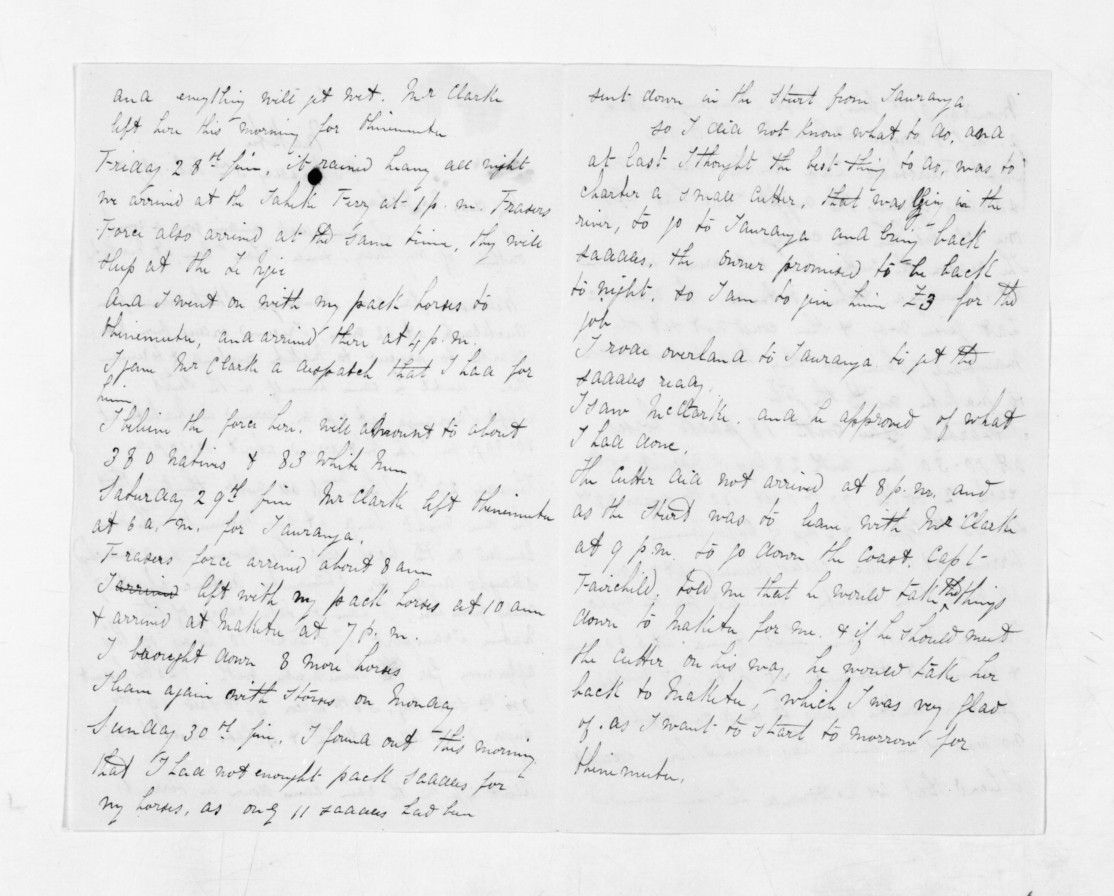 and everything will get wet. Mr Clarke
left here this morning for Ohinemutu
Friday 28th fine, it rained heavy all night
we arrived at the Taheke Ferry at 1 p.m. Frasers
Force also arrived at the same time, they will
sleep at the Te Ngae
And I went on with my pack horses to
Ohinemutu, and arrived there at 4 p.m.
I gave Mr Clark a despatch that I had for
him
I believe the force here. will amount to about
380 Natives & 83 White Men
Saturday 29th fine Mr Clark left Ohinemutu
at 6 a.m. for Tauranga.
Frasers force arrived about 8 am
I arrived left with my pack horses at 10 am
& arrived at Maketu at 7 p.m.
I brought down 8 more horses
I leave again with stores on Monday
Sunday 30th fine. I found out this morning
that I had not enought pack saddles for
my horses, as only 11 saddles had been
sent down in the Sturt from Tauranga
so I did not know what to do, and
at last I thought the best thing to do, was to
charter a small cutter, that was lying in the
river, to go to Tauranga and bring back
saddles, the owner promised to be back
to night, so I am to give him £3 for the
job
I rode overland to Tauranga to get the
saddles ready,
I saw Mr Clark. and he approved of what
I had done.
The cutter did not arrived at 8 p.m. and
as the Sturt was to leave with Mr Clark
at 9 p.m. to go down the coast. Capt
Fairchild. told me that he would take the things
down to Maketu for me. & if he should meet
the cutter on his way, he would take her
back to Maketu, which I was very glad
of. as I want to start to morrow for
Ohinemutu.